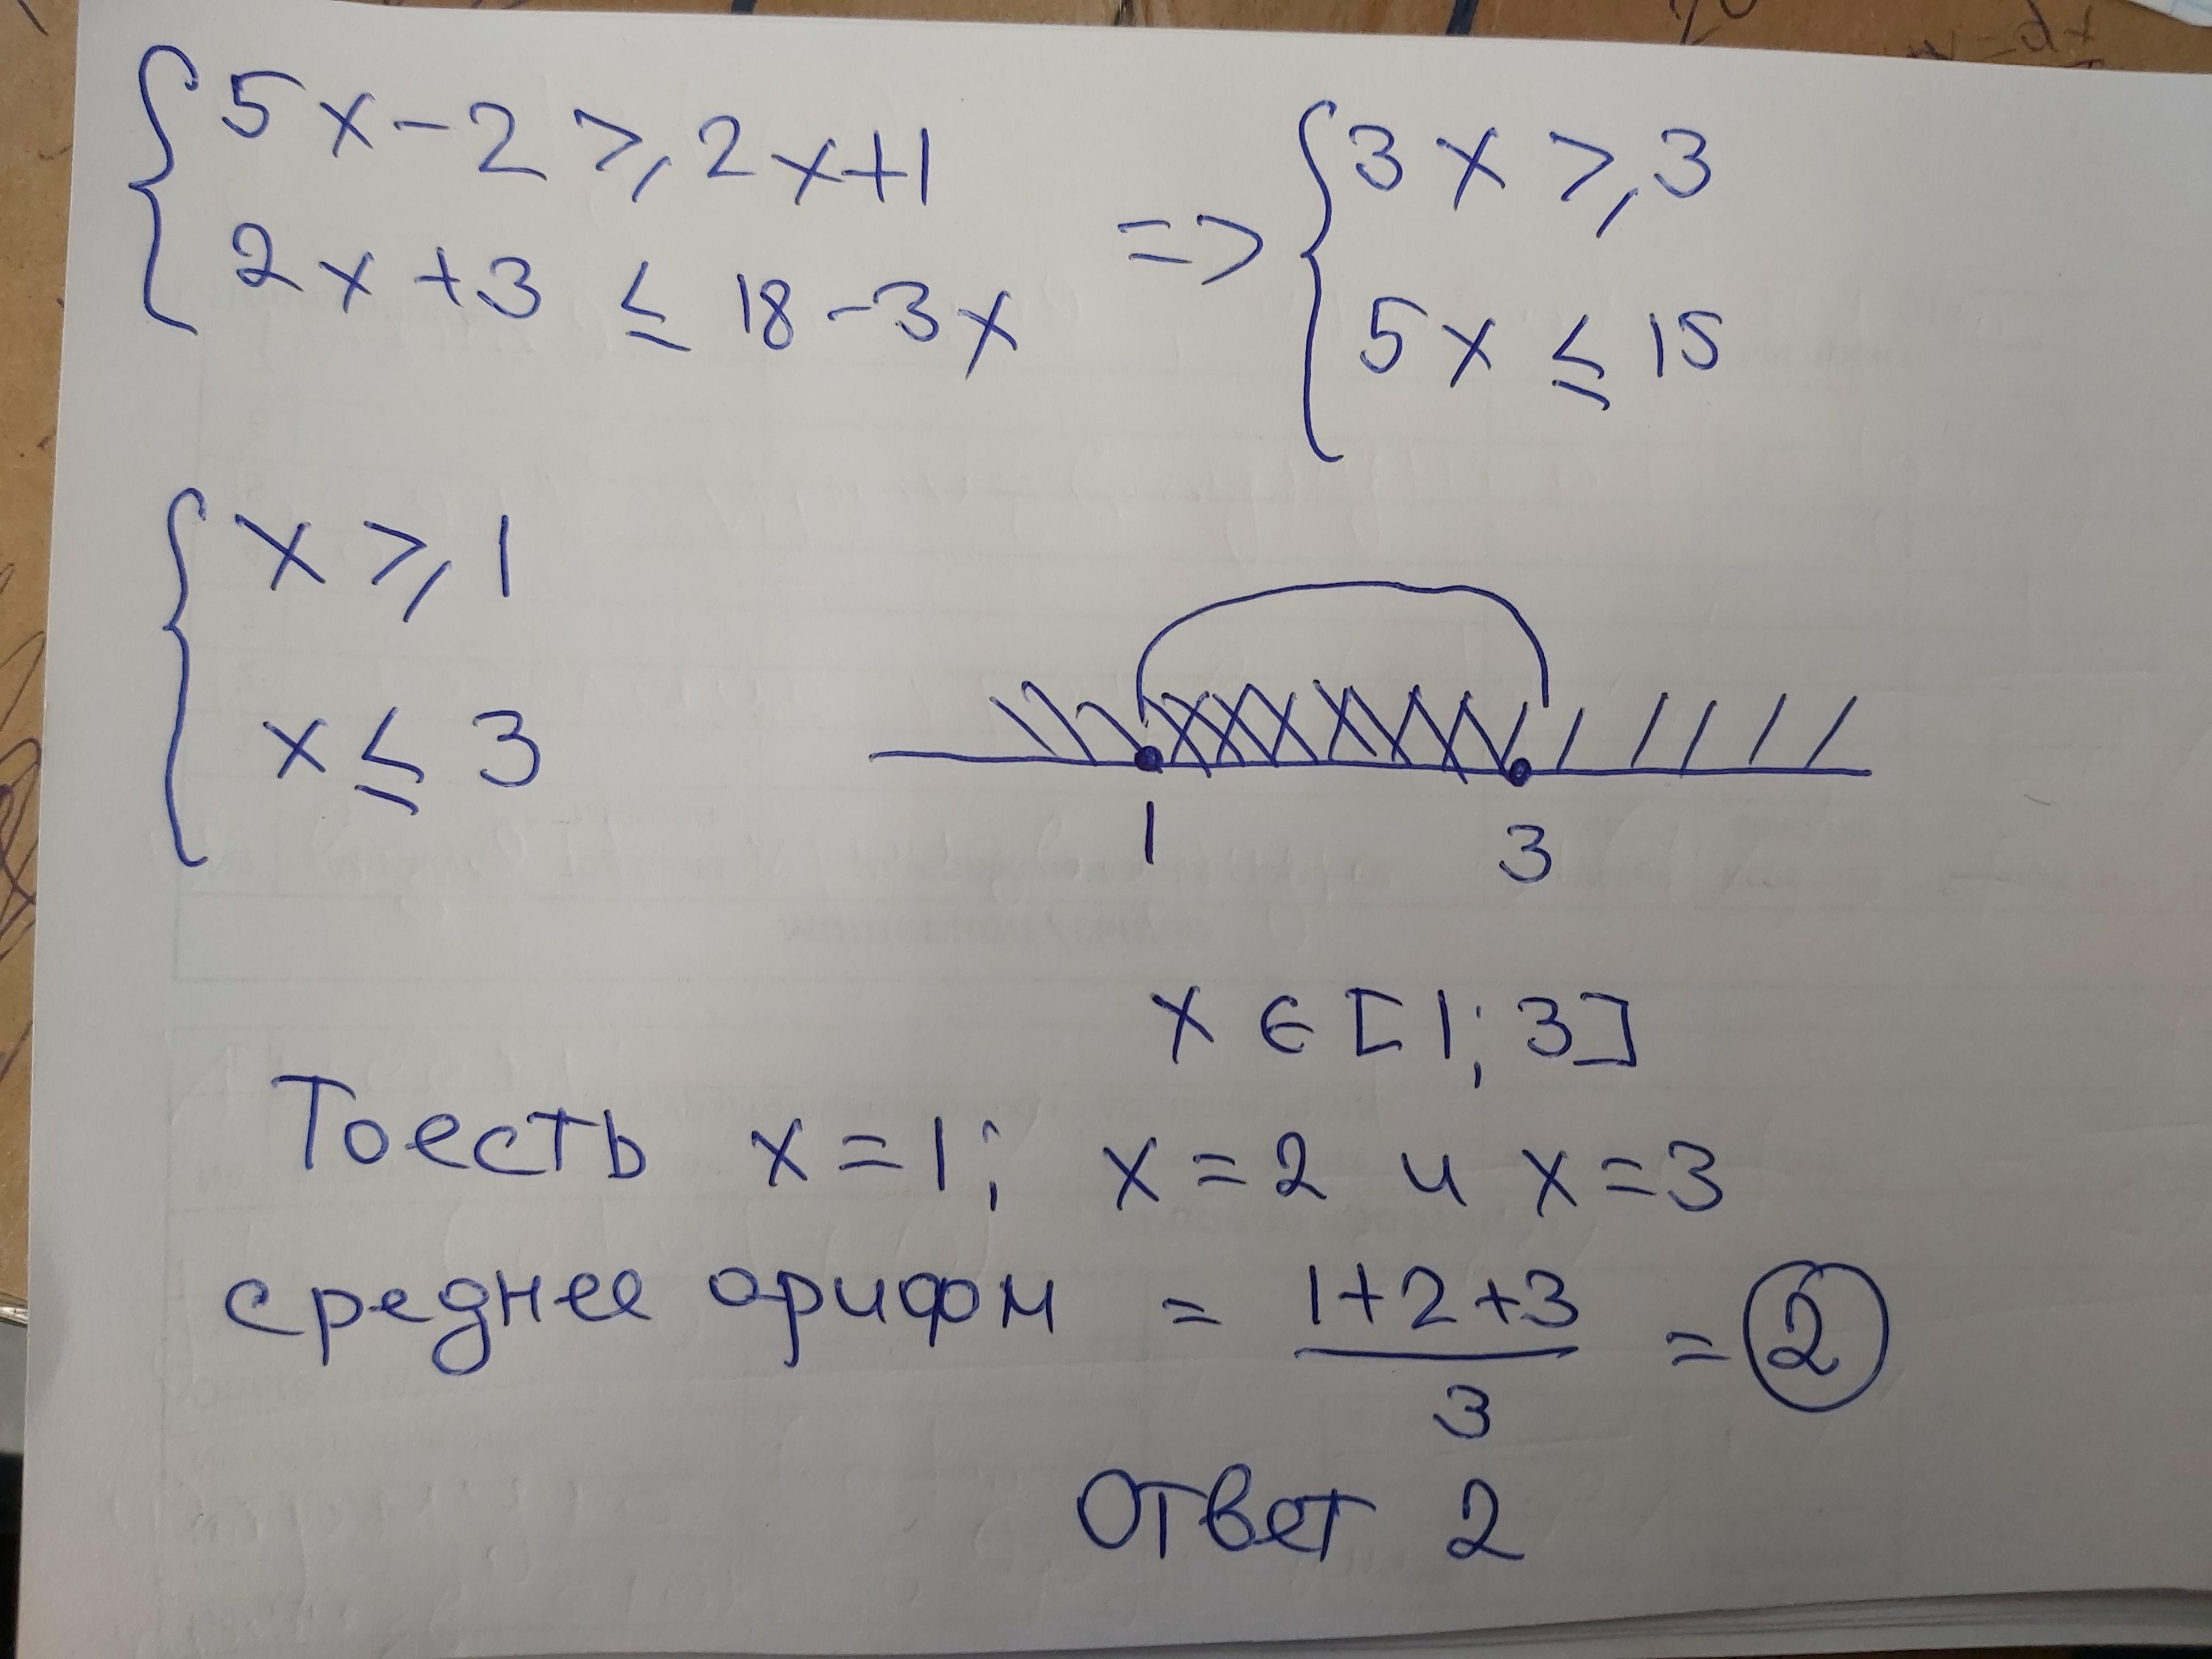 5x-2 ≥ 2x+1 => 3x ≥ 3
2x+3 ≤ 18-3x 5x ≤ 15
x ≥ 1
x ≤ 3
1 3
x ∈ [1; 3]
Тоесть x=1; x=2 и x=3
среднее арифм = (1+2+3)/3 = 2
ответ 2